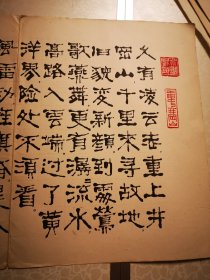 久有凌云志重上井
岡山千里来寻故地
旧貌变新颜到處鶯
歌燕舞更有潺潺流水
高路入云端过了黄
洋界险处不须看
雷动旌旗奋是人